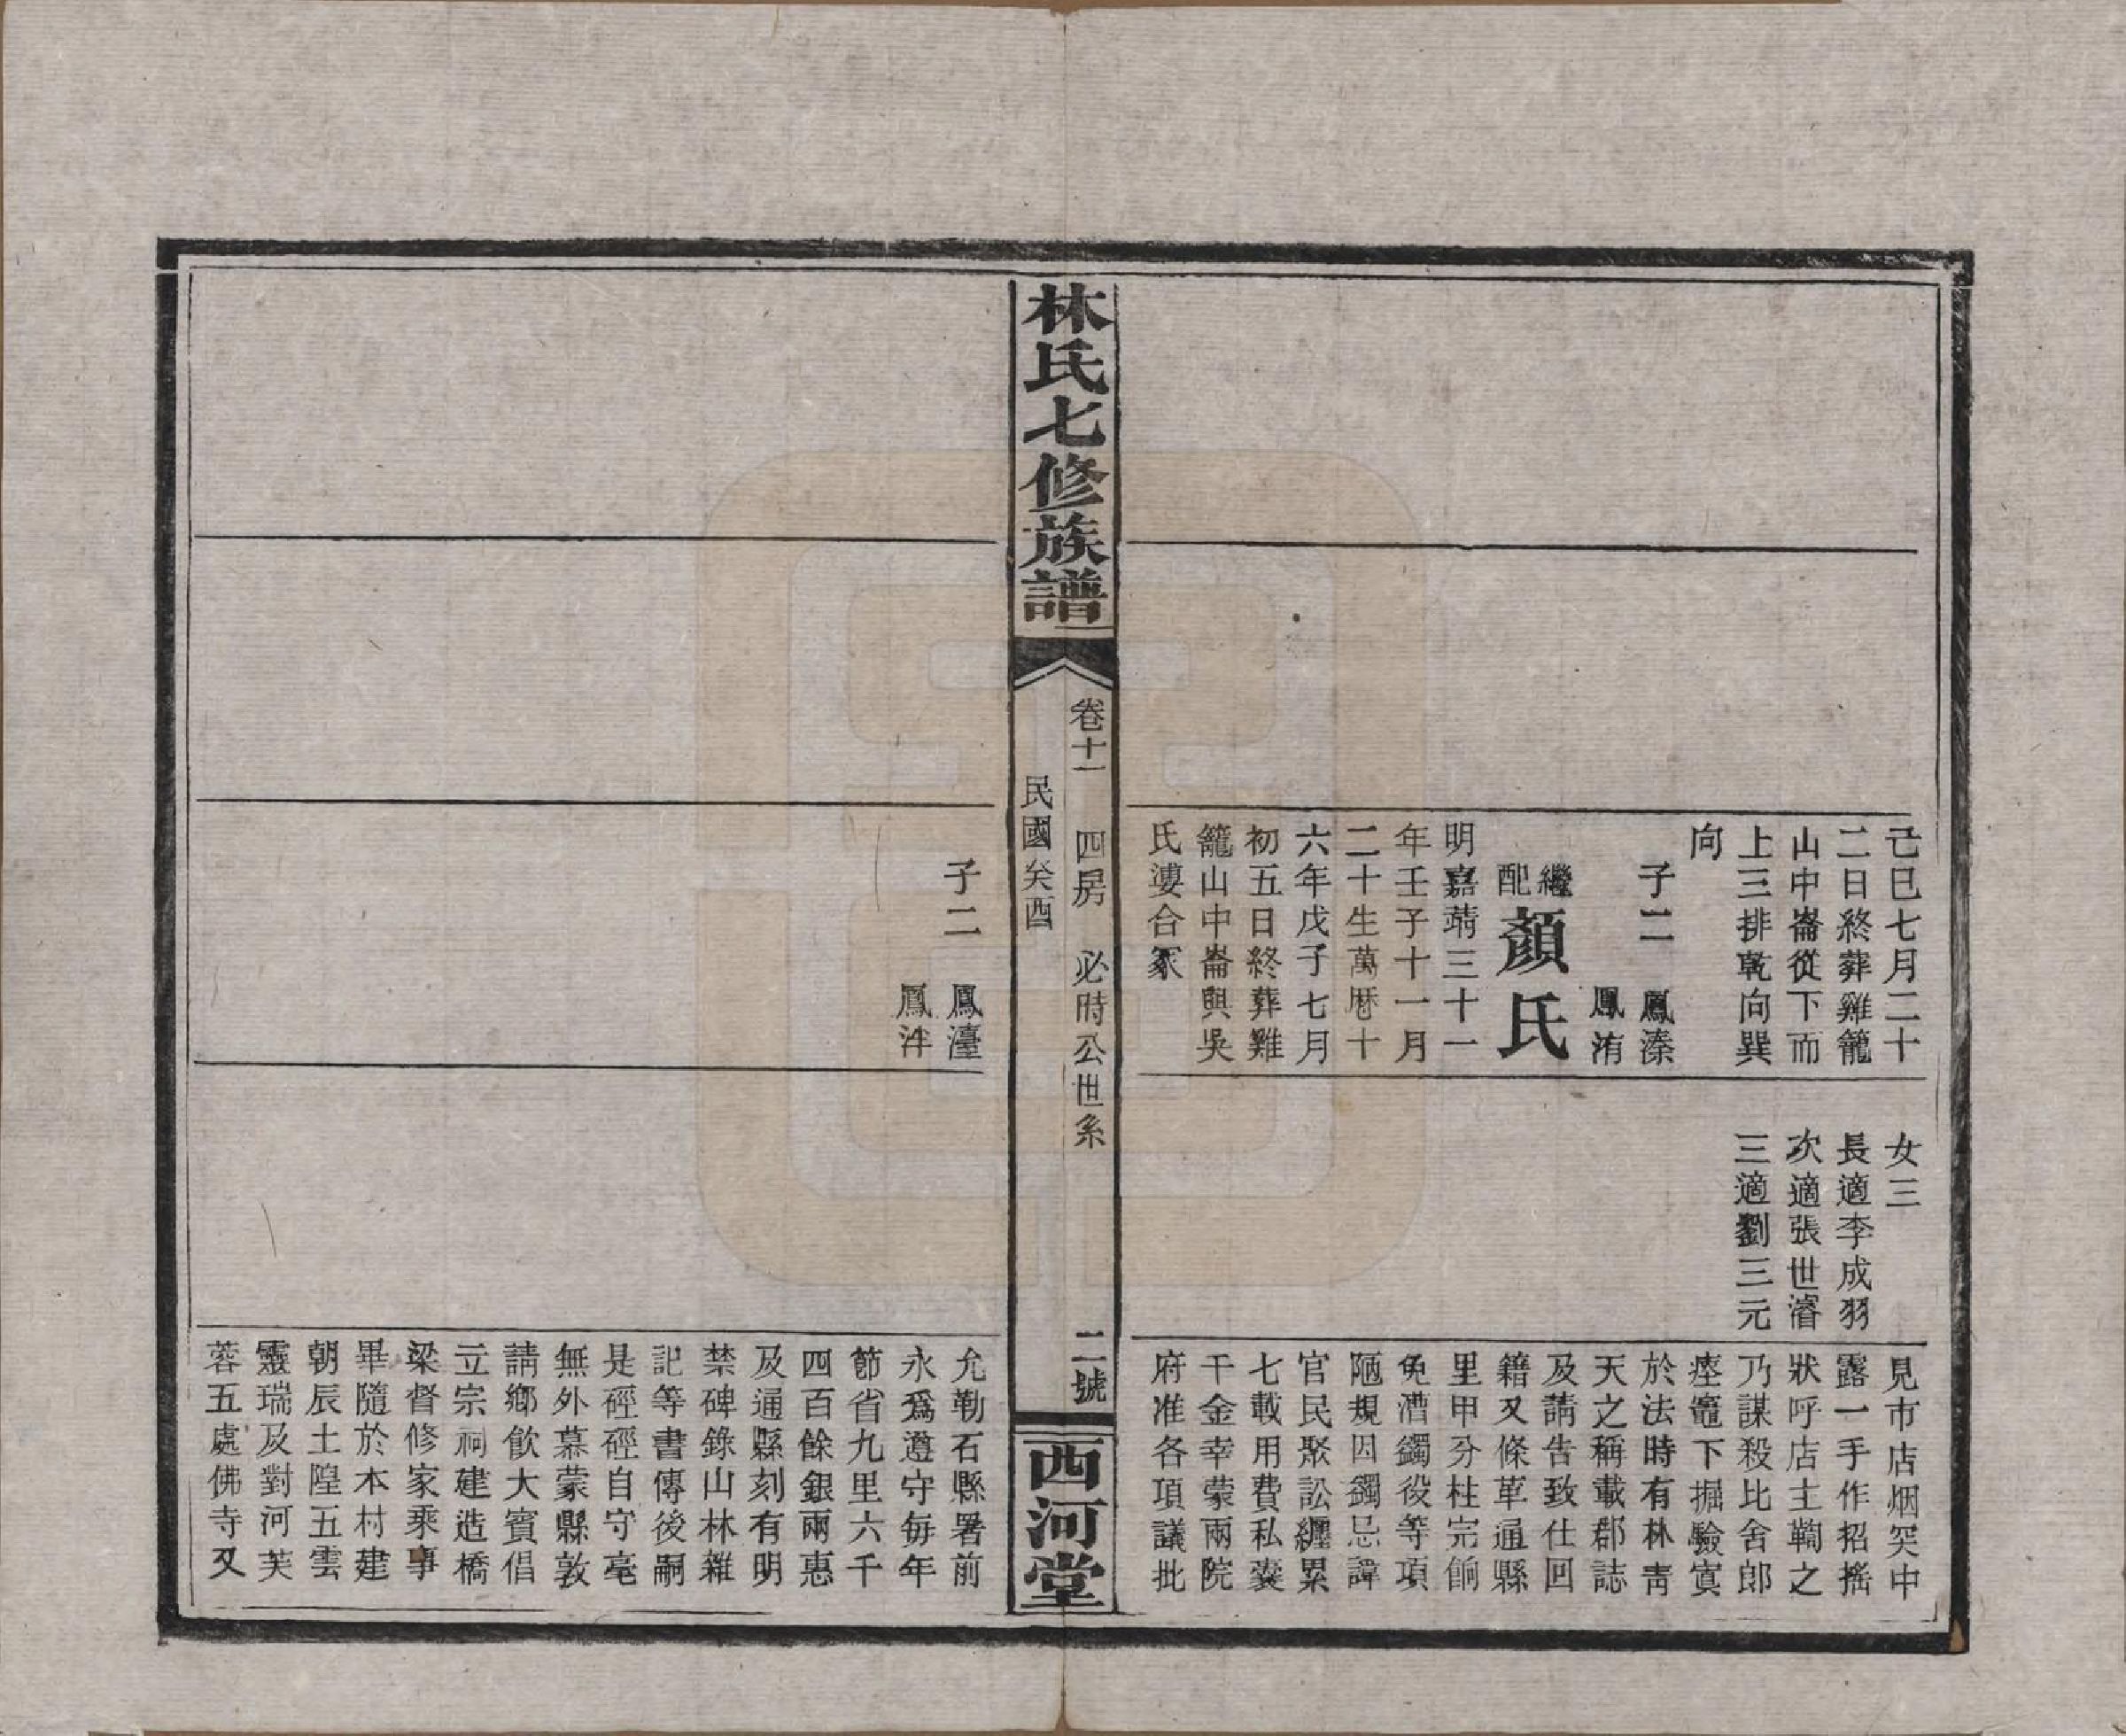 己巳七月二十
二日終葬雞籠
山中崙從下而
上三排乾向巽
向
子二 鳳溱
鳳洧
繼配顏氏
明嘉靖三十一
年壬子十一月
二十生萬曆十
六年戊子七月
初五日終葬雞
籠山中崙與吳
氏淒合冢
女三
長適李成羽
次適張世濬
三適劉三元
見市店烟突中
露一手作招搖
狀呼店主鞫之
乃謀殺比舍郎
瘞竈下掘驗寘
於法時有林青
天之稱載郡誌
及請告致仕回
籍又條革通縣
里甲分柱完餉
免漕蠲役等項
陋規因蠲忌諱
官民聚訟纒累
七載用費私囊
千金幸蒙兩院
府准各項議批
林氏七修族譜
卷十一 四房 必時公世系 二號
民國癸酉
西河堂
子二 鳳濅
鳳泮
允勒石縣署前
永爲遵守每年
節省九里六千
四百餘銀兩惠
及通縣刻有明
禁碑錄山林雜
記等書傳後嗣
是硜硜自守毫
無外慕蒙縣敦
請鄉飲大賓倡
立宗祠建造橋
梁督修家乘事
畢隨於本村建
朝辰土隍五雲
靈瑞及對河芙
蓉五處佛寺又